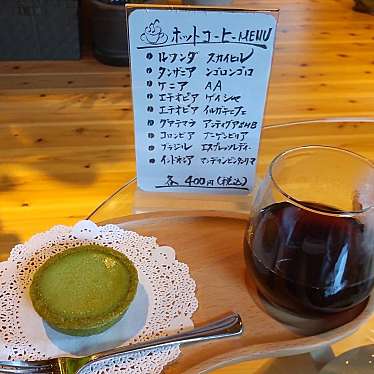 ホットコーヒーMENU
ルワンダ スカイヒル
タンザニア ンゴロンゴロ
ケニア AA
エチオピア ゲイシャ
エチオピア イルガチェフェ
グァテマラ アンティグアSHB
コロンビア ブーケンビリア
ブラジル エスプレッソティー
インドネシア マンデリンビンタンリマ
各 400円(税込)